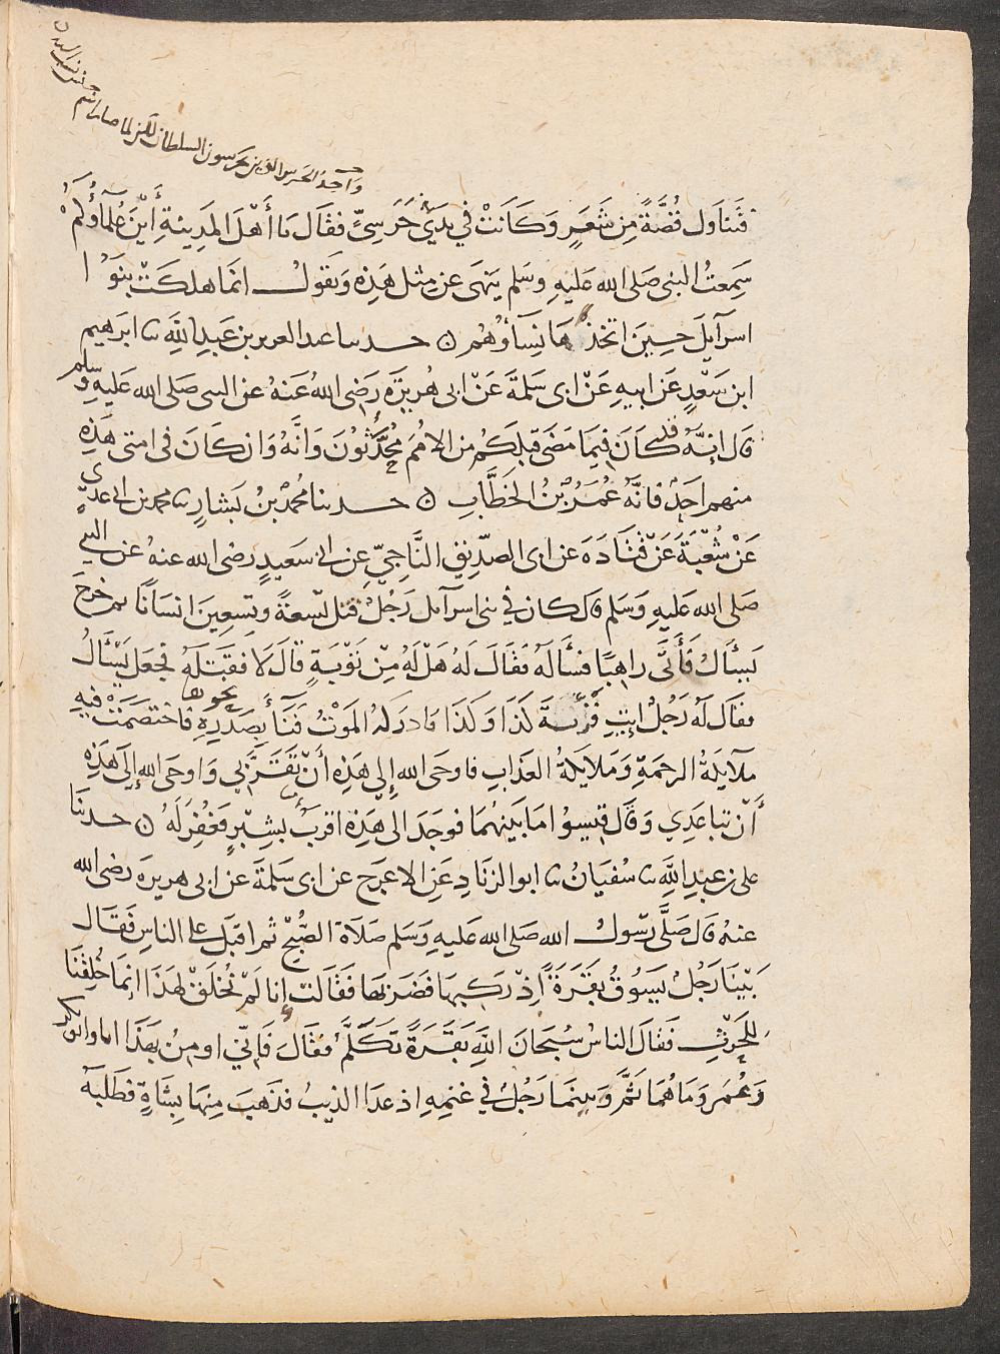 واحد الحرس الذين يحرسون السلطان
فتناول قُصَّةً مِن شَعَرٍ وَكَانَتْ في يَدَيْ حَرَسِيٍّ فقَال يَا أَهْلَ المَدِينةِ أَيْنَ عُلَمَآؤُكُمْ
سَمِعتُ النبي صَلى الله عَليهِ وسَلم يَنهَى عن مثل هَذِه وَيَقولُ انما هلكَتْ بنَوُا
اسرآيلَ حِينَ اتخذ هَا نِسَآؤُهُم ۝ حدثنا عبد العزيز بن عَبدِ اللَّهِ ثنا ابرَهيم
ابن سَعْدٍ عَن ابيهِ عَنْ ابى سَلمَةَ عَنْ ابى هُرَيْرَةَ رَضى اللهُ عَنهُ عن النبى صَلى الله عَليهِ وسلم
قَال إنَّهُ قد كَانَ فِيمَا مَضَى قبلَكُم مِن الامُمِ مُحَدَّثُونَ وَانَّهُ وَان كَانَ فى امتى هَذِهِ
منهم احَدٌ فانَّهُ عُمَرُ بْنُ الخَطَّابِ ۝ حدثنا مُحمَّدُ بنُ بَشارٍ ثنا محمد بن ابى عدى
عَنْ شُعْبَةَ عَنْ قتَادَةَ عن ابى الصدِّيق النَّاجِيِّ عن ابى سَعيدٍ رضى الله عنهُ عن النبي
صَلى الله عَليهِ وَسَلم قال كان في بنى اسرآيل رَجُلٌ قتل تِسعَةً وتِسعِينَ انسَانًا ثم خرجَ
يَسْأَلُ فَأَتَى رَاهِبًا فسْأَلهُ فقَالَ لهُ هَلْ لهُ مِنْ تَوْبَةٍ قَالَ لَا فقَتلهُ فجَعل يَسْأَلُ
فقَال لَهُ رَجُلٌ ايتِ قَرْيَةَ كَذَا وَكَذَا فادرَكهُ الموْتُ فَنَآءَ بِصَدْرِهِ نحوها فاختصَمَتْ فيهِ
مَلآيَكةُ الرحمَةِ وَمَلايَكةُ العَذابِ فاوحَى الله إِلى هَذِهِ أَنْ تَقَرَّبى وَاوحَى الله إِلَى هَذِهِ
أَنْ تباعَدِي وَقَال قِيسوُا مَا بَينهُمَا فوجَدَ الى هَذِهِ اقربُ بشِبْرٍ فَغُفِرَ لَهُ ۝ حدثنَا
على بن عبدِ اللَّهِ ثنا سُفيَانُ ثنا ابو الزنَادِ عَنِ الاعرَج عن ابى سَلمَةَ عن ابى هريرَة رضى الله
عنهُ قال صَلَّى رَسُولُ الله صَلى الله عَليهِ وَسَلم صَلَاةَ الصُّبْحِ ثم اقبَل على الناسِ فَقَال
بَيْنَا رَجُلٌ يَسُوقُ بقَرَةً اِذْ رَكِبهَا فضَرَبَهَا فقَالتْ إِنا لَمْ نُخلَقْ لِهَذَا إِنمَا خُلِقْنَا
لِلحَرْثِ فقَال الناسُ سُبحَانَ اللَّهِ بَقَرَةٌ تَكَلَّمُ فقَالَ فَإِنّي اومِنُ بهَذَا انا وابو بكر
وَعُمَرُ وَمَا هُمَا ثَمَّ وَبينمَا رَجُلٌ في غنمِهِ اذ عدَا الذيبُ فذَهَبَ مِنهَا بِشَاةٍ فطَلبَهُ